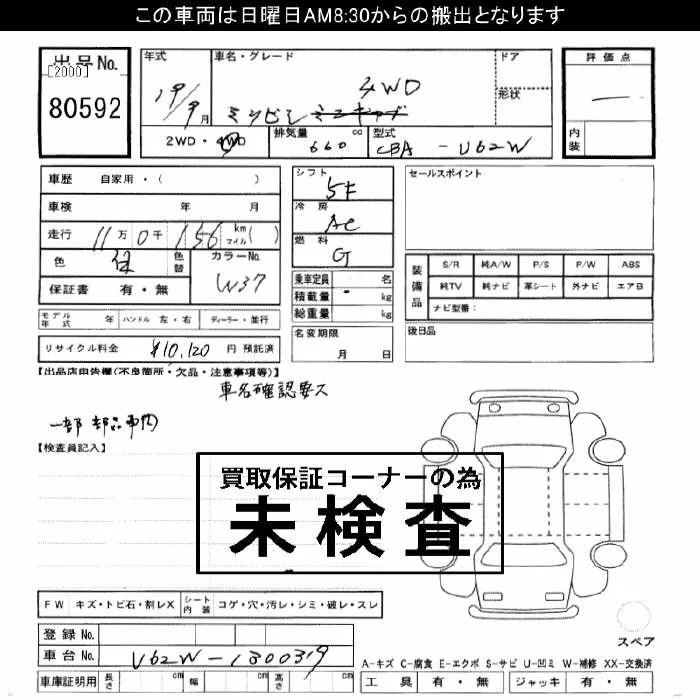 この車両は日曜日AM8:30からの搬出となります
出品No.
[2000]
80592
年式 車名・グレード ドア
19/9月 ミツビシ ミニキャブ 4WD 形状
2WD・4WD 排気量 660 cc 型式 CBA - U62W
評価点
—
内装
車歴 自家用・( )
車検 年 月
走行 11万 0千 156 km マイル( )
色 色替 カラーNo. W37
保証書 有・無
モデル年式 年 ハンドル 左・右 ディーラー・並行
リサイクル料金 ¥10,120 円 預託済
シフト 5F
冷房 AC
燃料 G
乗車定員 名
積載量 - kg
総重量 kg
名変期限
月 日
セールスポイント
装備品 S/R 純A/W P/S P/W ABS
純TV 純ナビ 革シート 外ナビ エアB
ナビ型番:
後日品
【出品店申告欄(不良箇所・欠品・注意事項等)】
車名確認要ス
一部 部品車内
【検査員記入】
買取保証コーナーの為
未検査
FW キズ・トビ石・割レX シート内装 コゲ・穴・汚レ・シミ・破レ・スレ
登録 No.
車台 No. U62W-1300319
車庫証明用 長さ cm 幅 cm 高さ cm
スペア
A-キズ C-腐食 E-エクボ S-サビ U-凹ミ W-補修 XX-交換済
工具 有・無 ジャッキ 有・無